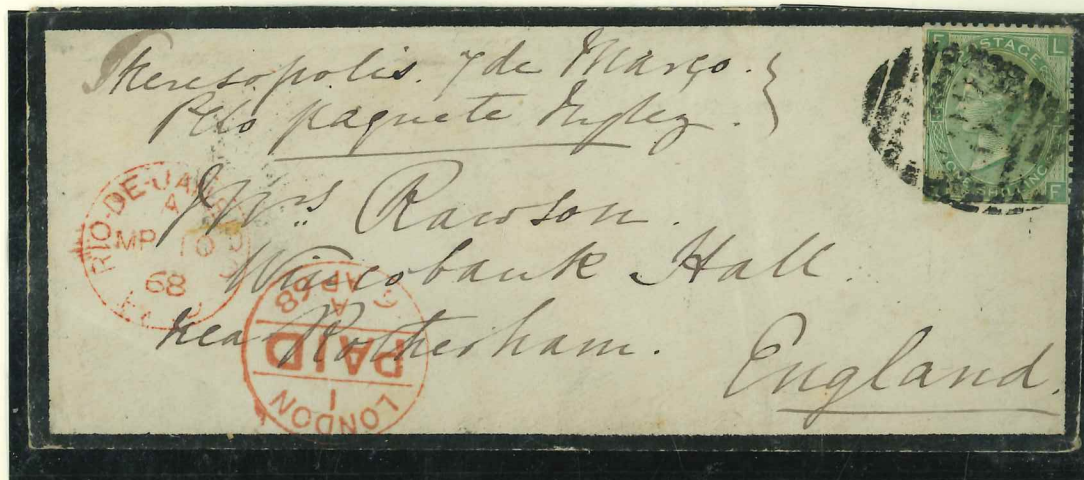 Theresopolis. 7 de Março.
Pelo paquete Inglez.
Mrs. Rawson.
Wincobank Hall.
near Rotherham.
England.
RIO-DE-JANEIRO
A
MR 10
68
PAID
LONDON
1
PAID
A
AP 68
POSTAGE
ONE SHILLING
F L
L F